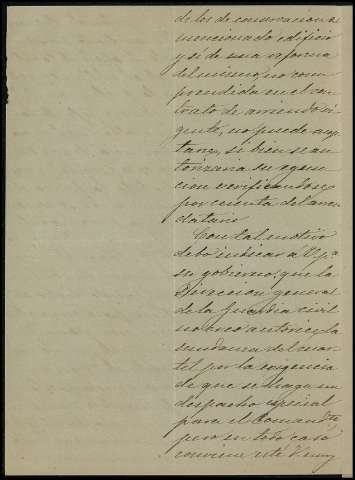 de los de conservacion del
mencionado edificio
y si de una reforma
del mismo, no com
prendida en el con
trato de arriendo vi
gente, no puede acep
tarse, si bien se au
torizaria su ejecu
cion verificandose
por cuenta del arren
datario
Con tal motivo
debo indicar á V. pª
su gobierno, que la
Direccion general
de la Guardia civil
no autoriza la
mudanza del cuar
tel por la exigencia
de que se haga un
despacho especial
para el Comandte,
pero en todo caso
conviene esté V. muy